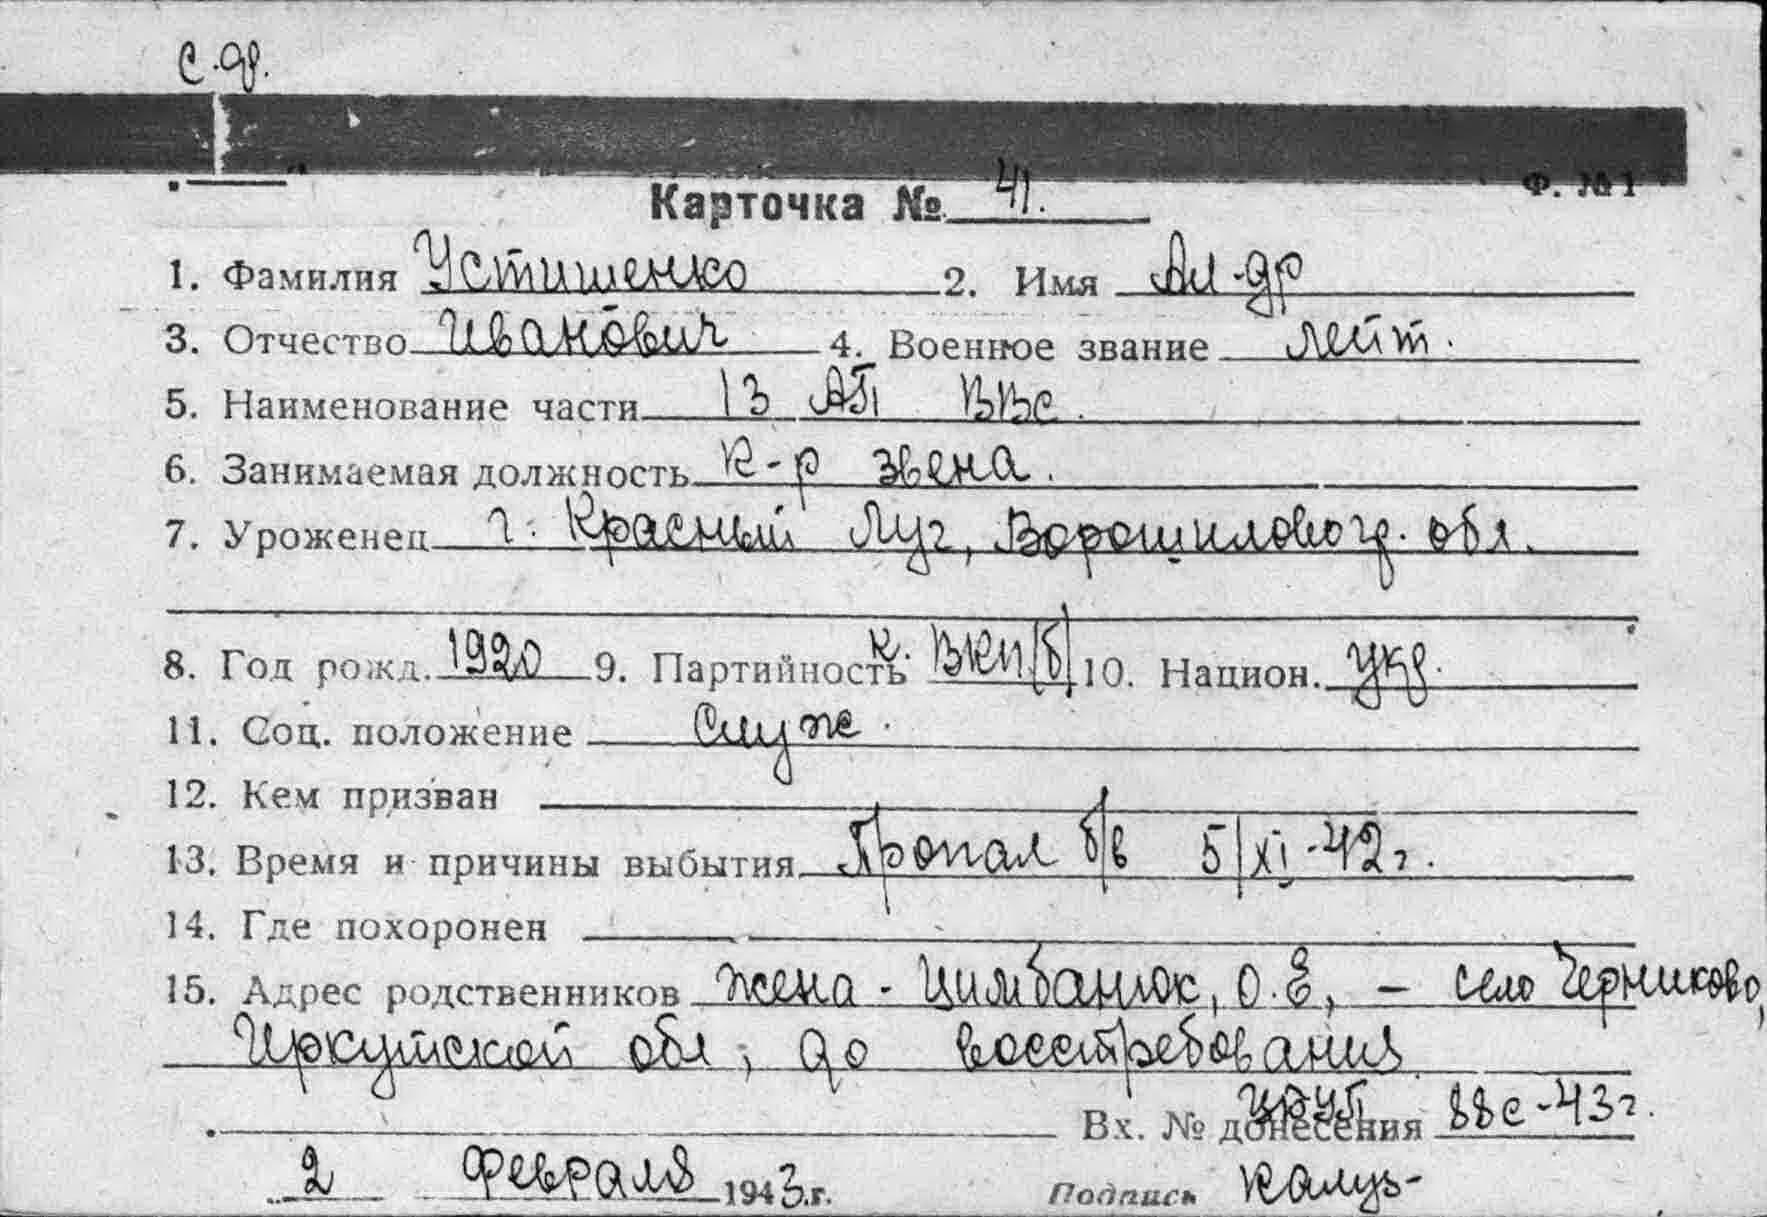 с.др.
Ф. №1
Карточка № 41.
1. Фамилия Устишенко 2. Имя Ал-др
3. Отчество Иванович 4. Военное звание лейт.
5. Наименование части 13 АП ВВС.
6. Занимаемая должность К-р звена.
7. Уроженец г. Красный Луг, Ворошиловогр. обл.
8. Год рожд. 1920 9. Партийность к. ВКП/б/ 10. Национ. укр.
11. Соц. положение Служ.
12. Кем призван
13. Время и причины выбытия Пропал б/в 5/XI-42г.
14. Где похоронен
15. Адрес родственников жена - Цимбанюк, О.Е, - село Черниково,
Иркутской обл, до восстребования
Вх. № донесения 88с-43г.
2 Февраля 1943.г. Подпись